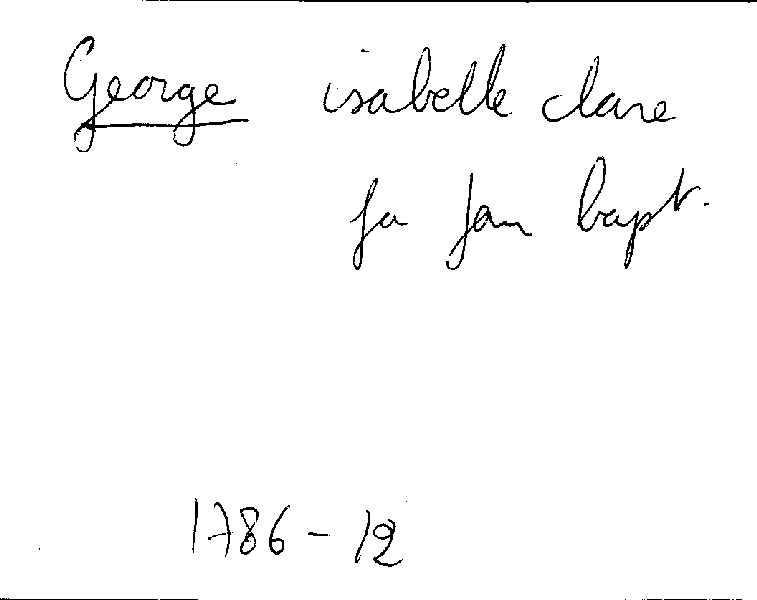 George isabelle clare
fa jan bapt.
1786 - 12